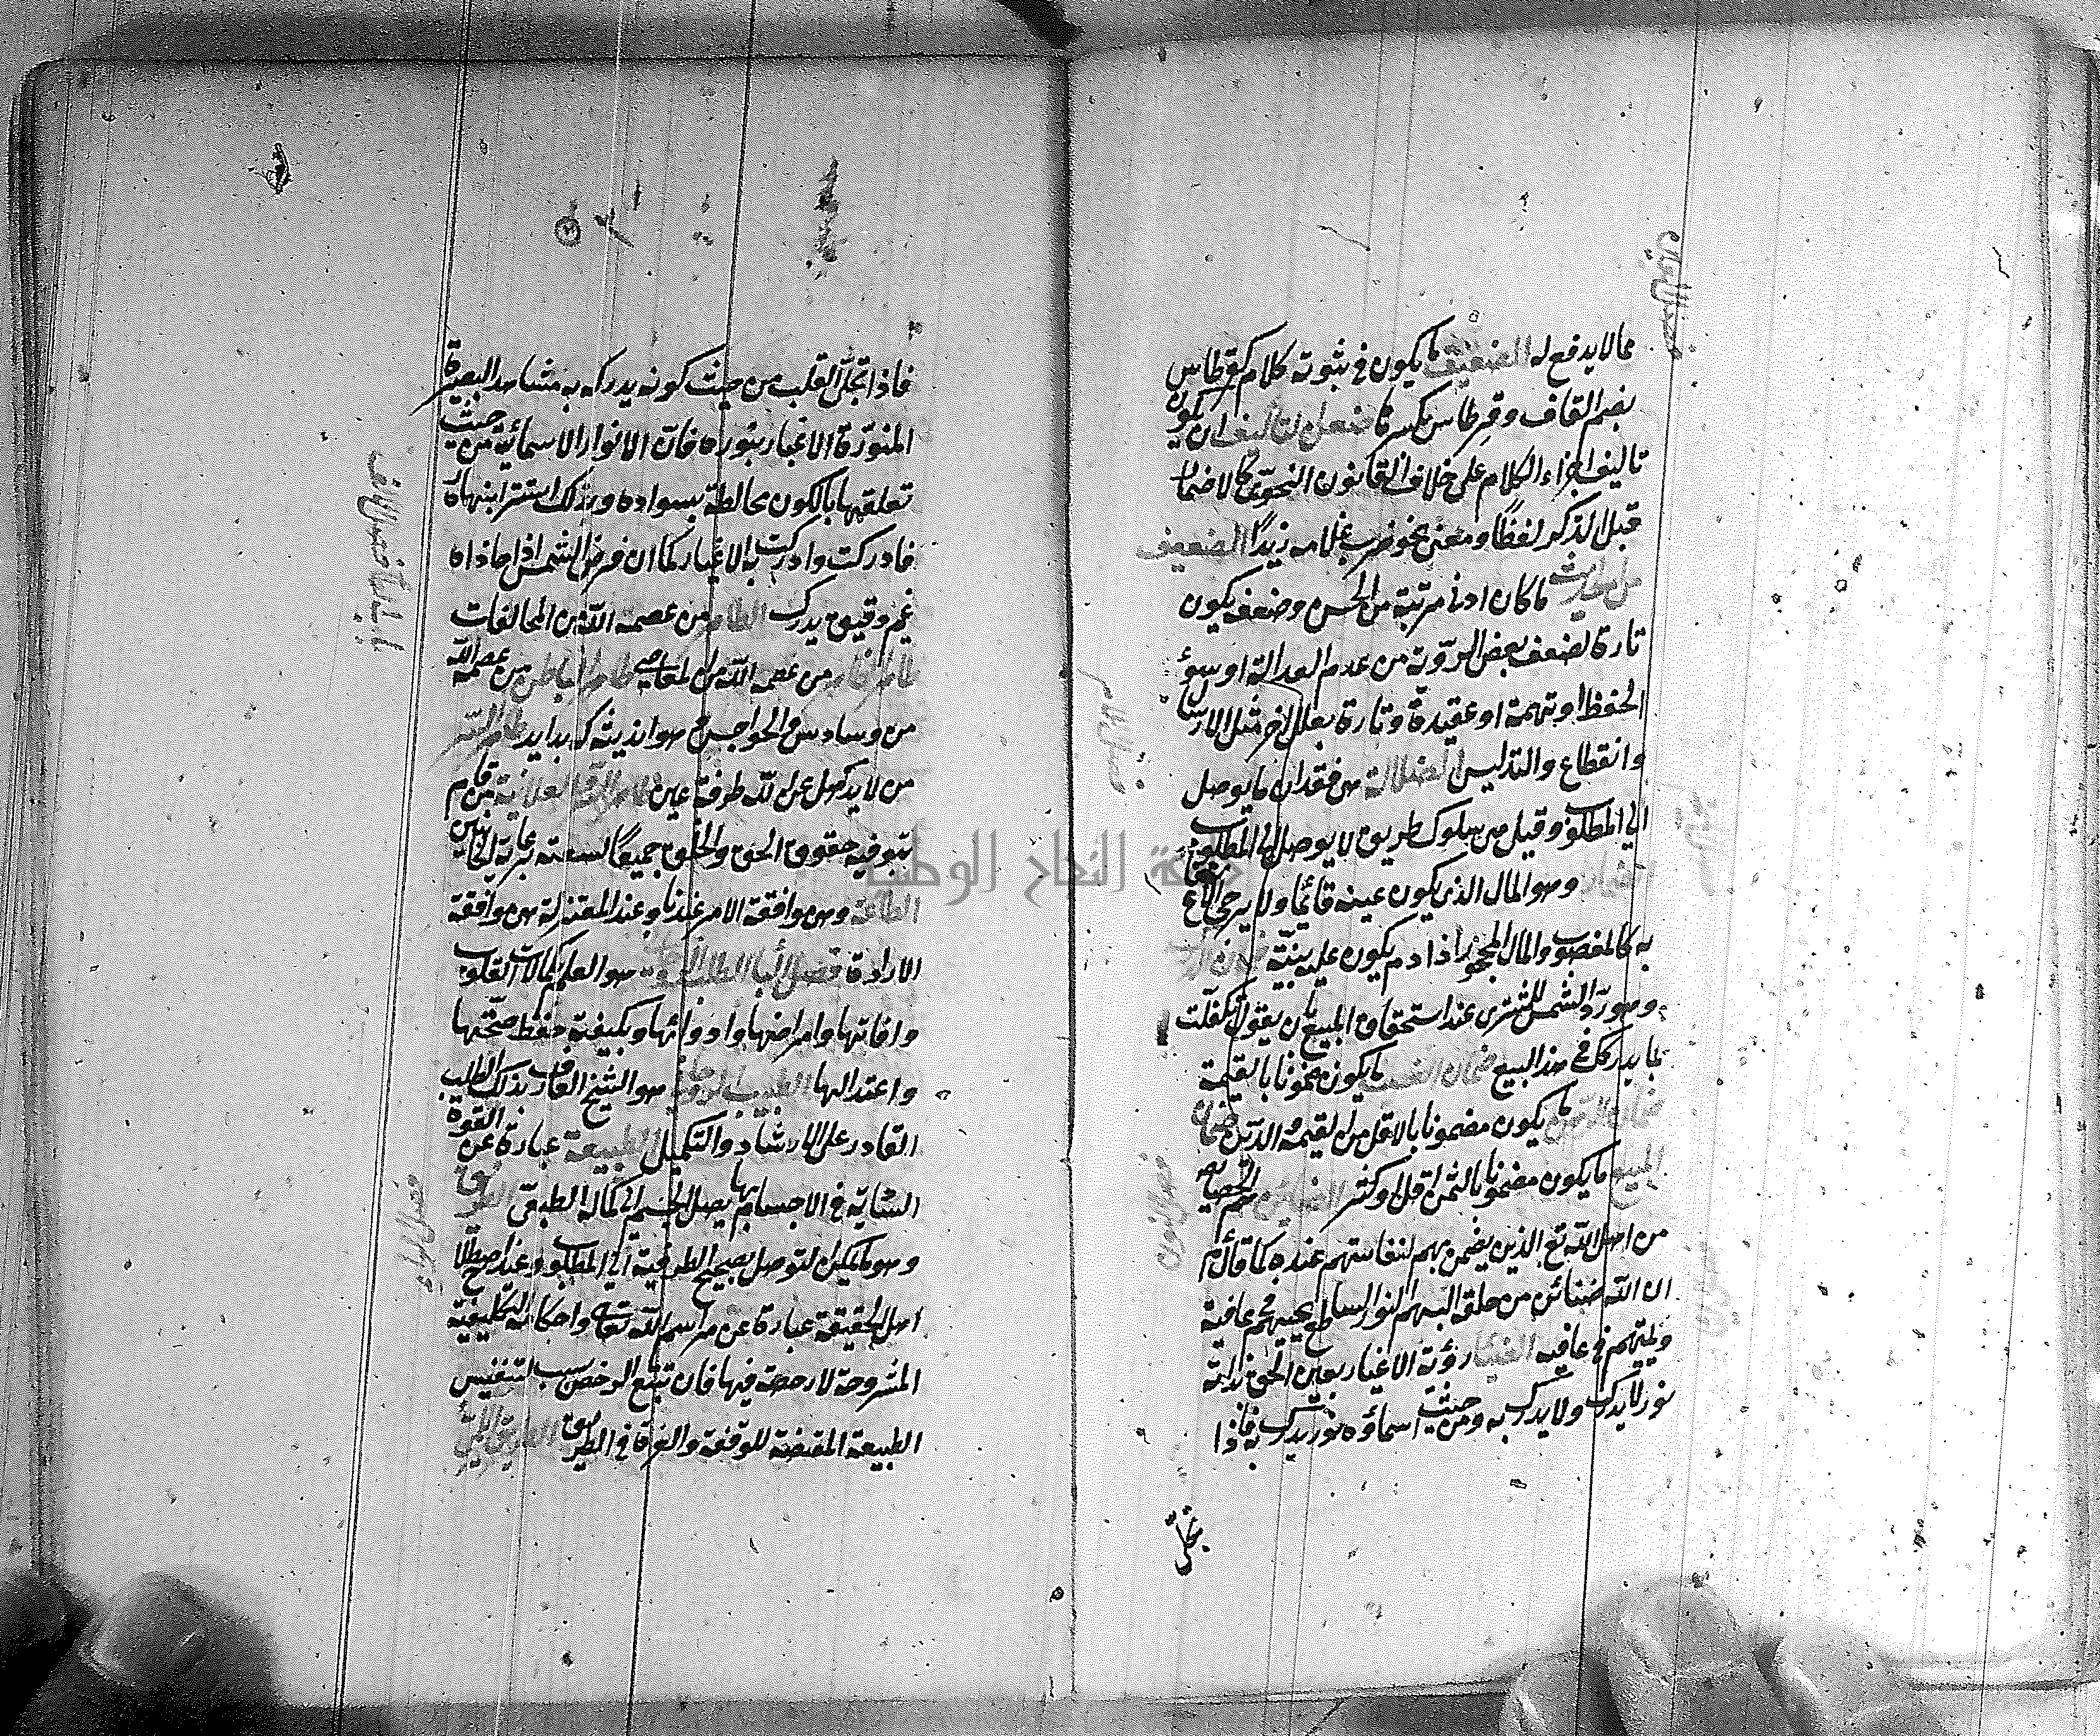 مما لا يدفع له الضعيف ما يكون في ثبوته كلام كقرطاس
بضم القاف وقرطاس بكسرها ضعف التاليف ان يكون
تاليف اجزاء الكلام على خلاف القانون النحوي كالاضمار
قبل الذكر لفظا ومعنى نحو ضرب غلامه زيدا الضعيف
من الحديث ما كان ادنى مرتبة من الحسن وضعفه يكون
تارة لضعف بعض الروٰة من عدم العدالة او سوء
الحفظ او تهمة او عقيدة وتارة بعلل اخر مثل الارسال
وانقطاع والتدليس الضلالة هي فقدان ما يوصل
الى المطلوب وقيل هي سلوك طريق لا يوصل الى المطلوب
الضمار وهو المال الذي يكون عينه قائما ولا يرجى الانتفاع
به كالمغصوب والمال المجحود اذا لم يكن عليه بينة ضمان الدرك
وهو رد الثمن للمشتري عند استحقاق المبيع بان يقول تكفلت
بما يدركك في هذا البيع ضمان الغصب ما يكون مضمونا بالقيمة
ضمان الرهن ما يكون مضمونا بالاقل من القيمة والدين ضمان
المبيع ما يكون مضمونا بالثمن قل او كثر الضنائن هم الخصايص
من اهل الله تع الذين يضن بهم لنفاستهم عنده كما قال م
ان الله ضنائن من خلقه البسهم النور الساطع يحييهم في عافية
ويميتهم في عافية الضياء رؤية الاغيار بعين الحق فان الحق بذاته
نور لا يدرك ولا يدرك به ومن حيث اسماؤه نور يدرك به فاذا
تجلى
فاذا تجلى القلب من حيث كونه يدرك به مشاهد البصيرة
المنورة الاغيار بنوره فان الانوار الاسمائية من حيث
تعلقها بالكون مخالطة بسواده وبذلك استتر انبهاره
فادركت وادركت به الاغيار كما ان قرص الشمس اذا حاذاه
غيم رقيق يدرك الطاهر من عصمه الله من المخالفات
طاهر الظاهر من عصمه الله من المعاصي طاهر الباطن من عصمه الله
من وساوس والهواجس هو انديشه كه بدايد طاهر السر
من لا يذهل عن الله طرفة عين طاهر السر والعلانية من قام
بتوفية حقوق الحق والخلق جميعا لسعته برعاية الجانبين
الطاعة وهي موافقة الامر عندنا وعند المعتزلة هي موافقة
الارادة فصل الباء الطب الروحاني هو العلم بكمالات القلوب
وافاتها وامراضها وادوائها وبكيفية حفظ صحتها
واعتدالها الطبيب الروحاني هو الشيخ العارف بذلك الطب
القادر على الارشاد والتكميل الطبيعة عبارة عن القوة
السارية في الاجسام بها يصل الجسم الى كماله الطبيعي الطريق
وهو ما يمكن التوصل بصحيح النظر فيه الى المطلوب وعند اصطلاح
اهل الحقيقة عبارة عن مراسم الله تعالى واحكامه التكليفية
المشروعة لا رخصة فيها فان تتبع الرخص سبب لتنفيس
الطبيعة المقتضية للوقفة والفترة في الطريق
باب الطاء فصل الالف
فصل الباء
فصل اللام
فصل النون